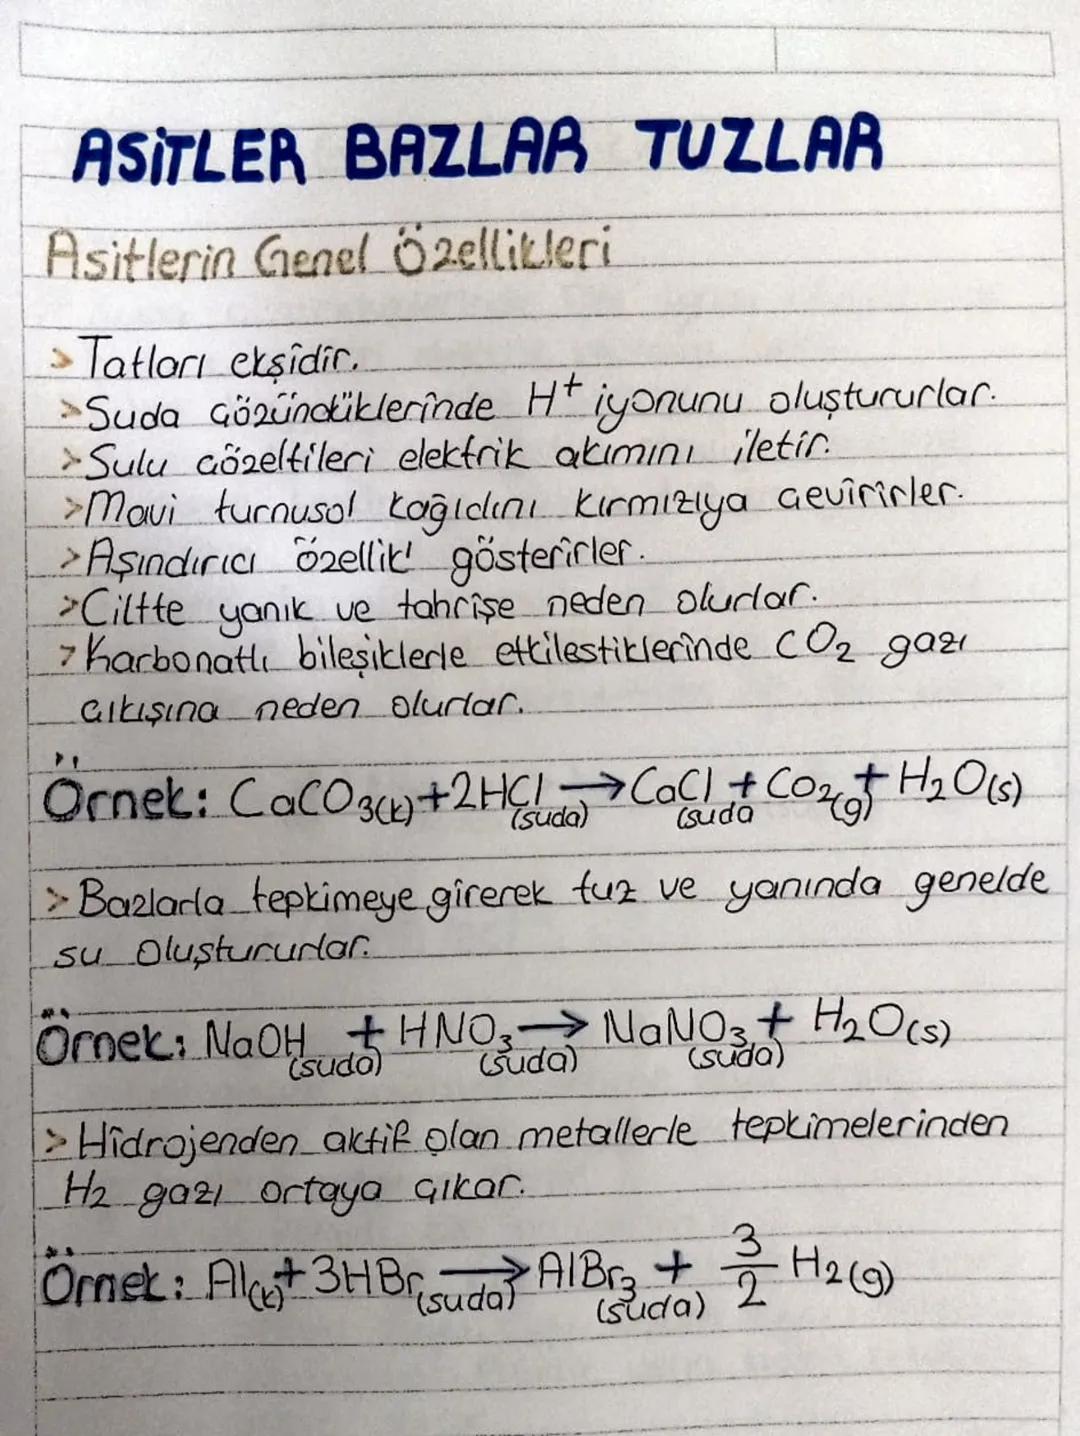 ASİTLER BAZLAR TUZLAR
Asitlerin Genel Özellikleri
> Tatları ekşidir.
> Suda çözündüklerinde H+ iyonunu oluştururlar.
> Sulu çözeltileri elektrik akımını iletir.
> Mavi turnusol kağıdını kırmızıya çevirirler.
> Aşındırıcı özellik gösterirler.
> Ciltte yanık ve tahrişe neden olurlar.
> Karbonatlı bileşiklerle etkilestiklerinde CO2 gazı
çıkışına neden olurlar.
Örnek: CaCO3(k) + 2HCl (suda) → CaCl (suda + CO2(g) + H2O(s)
> Bazlarla tepkimeye girerek tuz ve yanında genelde
su oluştururlar.
Örnek: NaOH (suda) + HNO3 (suda) → NaNO3 (suda) + H2O(s)
> Hidrojenden aktif olan metallerle tepkimelerinden
H2 gazı ortaya çıkar.
Örnek: Al(k) + 3HBr (suda) → AlBr3 (suda) + 3/2 H2(g)